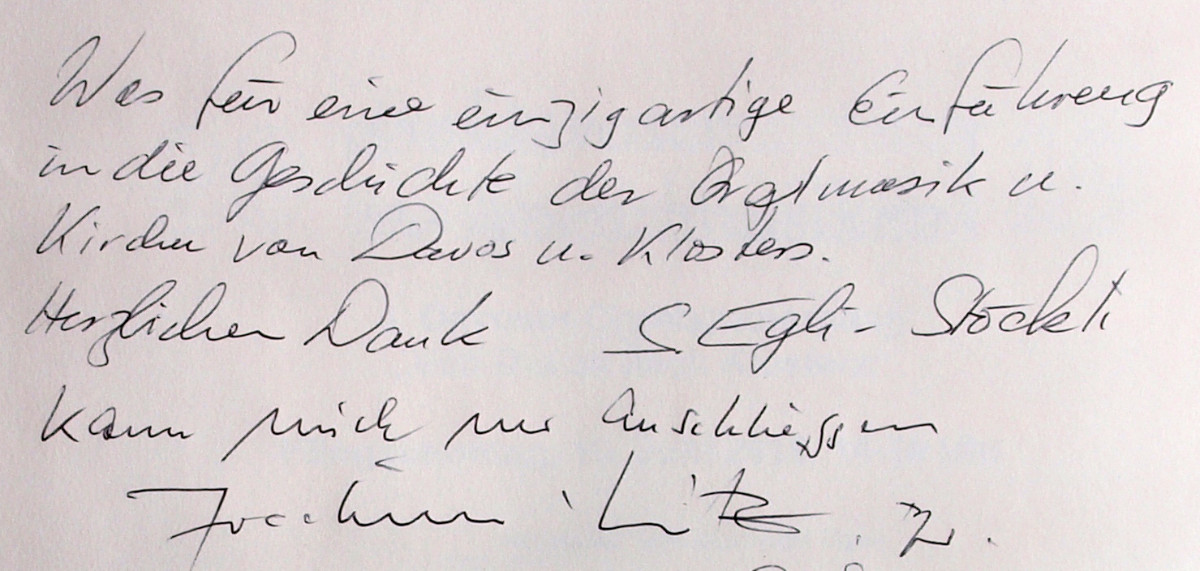 Was für eine einzigartige Einführung
in die Geschichte der Orgelmusik u.
Kirchen von Davos u. Klosters.
Herzlichen Dank S. Egli-Stöckli
Kann mich nur anschliessen
Joachim